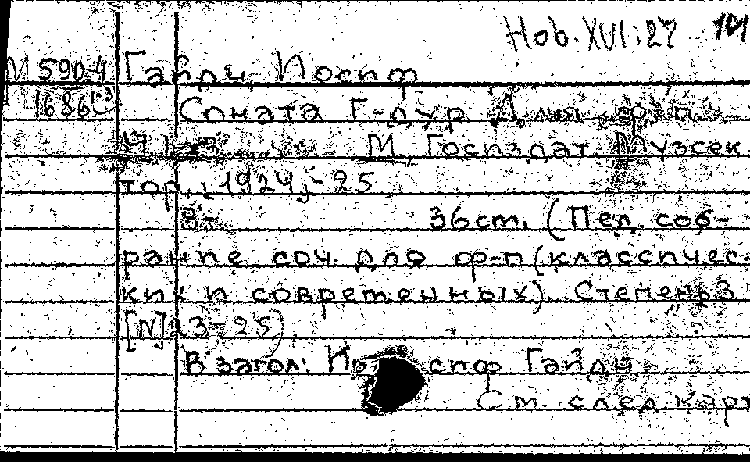 Hob. XVI:27
М 590-4 Гайдн, Иосиф
1686 Соната Г-дур Для ф-п.
М., Госиздат. Музсек-
тор, 1924,-25
8° 36cm. (Пед. соб-
рание соч. для ф-п (классичес-
ких и современных). Степень 3
[N] 13-25)
В загол: Иосиф Гайдн
См. след. карт